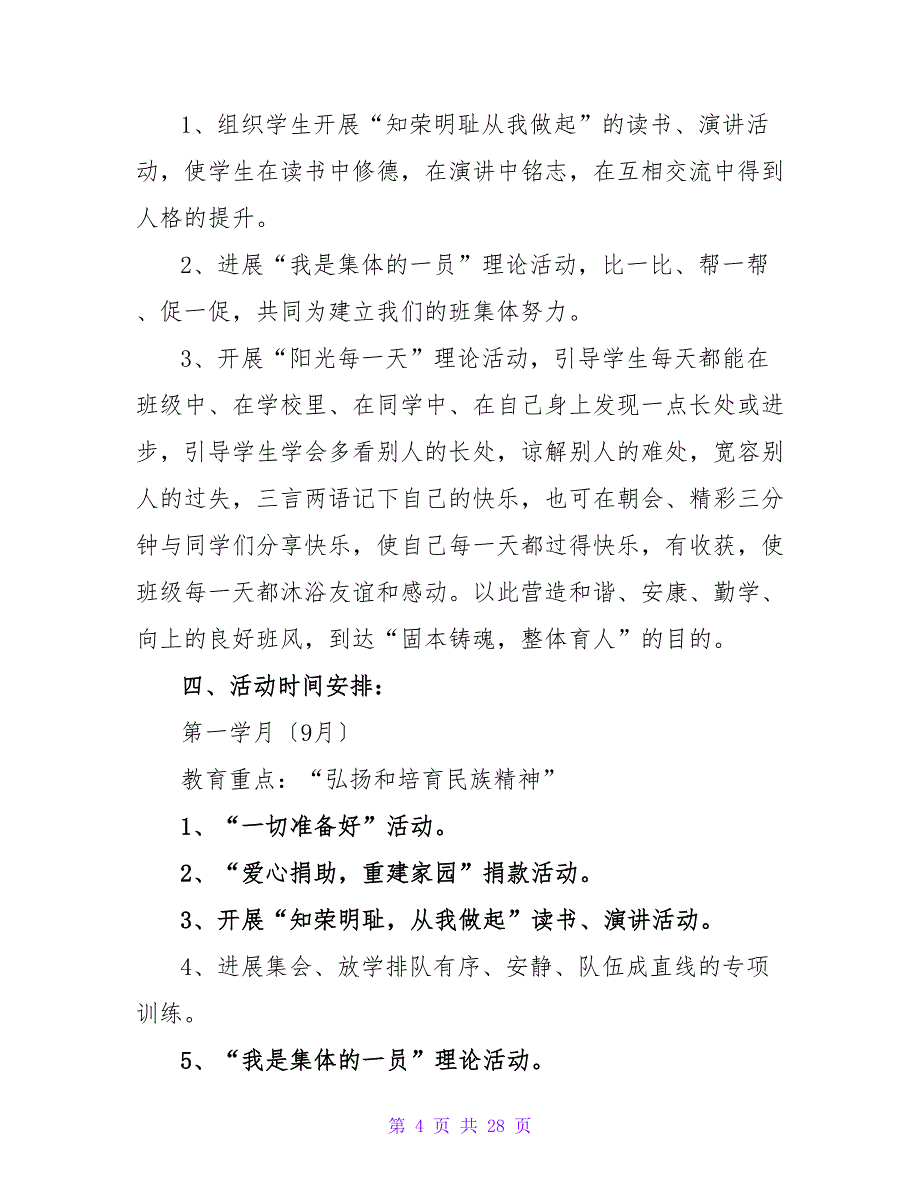 1、组织学生开展“知荣明耻从我做起”的读书、演讲活
动，使学生在读书中修德，在演讲中铭志，在互相交流中得到
人格的提升。
2、进展“我是集体的一员”理论活动，比一比、帮一帮
、促一促，共同为建立我们的班集体努力。
3、开展“阳光每一天”理论活动，引导学生每天都能在
班级中、在学校里、在同学中、在自己身上发现一点长处或进
步，引导学生学会多看别人的长处，谅解别人的难处，宽容别
人的过失，三言两语记下自己的快乐，也可在朝会、精彩三分
钟与同学们分享快乐，使自己每一天都过得快乐，有收获，使
班级每一天都沐浴友谊和感动。以此营造和谐、安康、勤学、
向上的良好班风，到达“固本铸魂，整体育人”的目的。
四、活动时间安排：
第一学月〔9月〕
教育重点：“弘扬和培育民族精神”
1、“一切准备好”活动。
2、“爱心捐助，重建家园”捐款活动。
3、开展“知荣明耻，从我做起”读书、演讲活动。
4、进展集会、放学排队有序、安静、队伍成直线的专项
训练。
5、“我是集体的一员”理论活动。
第 4 页 共 28 页